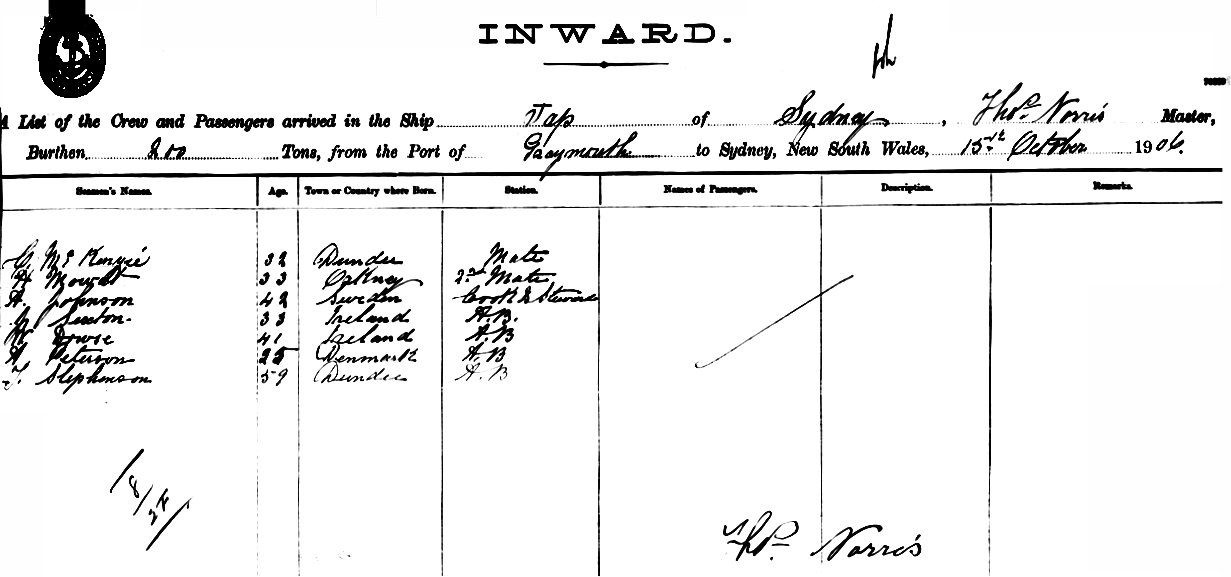 INWARD.
A List of the Crew and Passengers arrived in the Ship Jap of Sydney, Thos. Norris Master,
Burthen 200 Tons, from the Port of Greymouth to Sydney, New South Wales, 15th October 1906.
Seamen's Names. Age. Town or Country where Born. Station. Names of Passengers. Description. Remarks.
C. McKenzie 32 Dundee Mate
H Mowat 33 Orkney 2nd Mate
A. Johnson 42 Sweden Cook & Steward
Sexton 33 Ireland A.B.
W Dowse 41 Ireland A.B
A Peterson 25 Denmark A.B
J. Stephenson 59 Dundee A.B
Thos. Norris